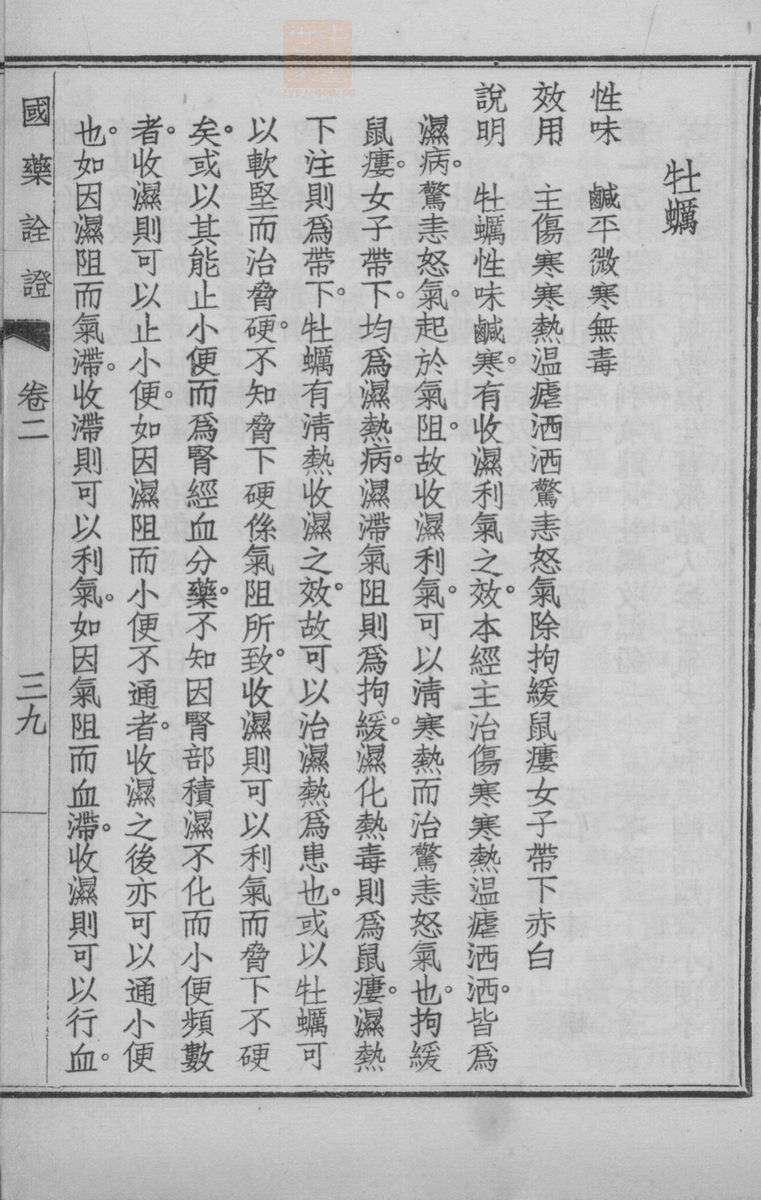 牡蠣
性味　鹹平微寒無毒
效用　主傷寒寒熱温瘧洒洒驚恚怒氣除拘緩鼠瘻女子帶下赤白
說明　牡蠣性味鹹寒。有收濕利氣之效。本經主治傷寒寒熱温瘧洒洒。皆爲
濕病。驚恚怒氣。起於氣阻。故收濕利氣。可以清寒熱而治驚恚怒氣也。拘緩
鼠瘻。女子帶下。均爲濕熱病。濕滯氣阻則爲拘緩。濕化熱毒則爲鼠瘻。濕熱
下注則爲帶下。牡蠣有清熱收濕之效。故可以治濕熱爲患也。或以牡蠣可
以軟堅而治脅硬。不知脅下硬係氣阻所致。收濕則可以利氣而脅下不硬
矣。或以其能止小便而爲腎經血分藥。不知因腎部積濕不化而小便頻數
者。收濕則可以止小便。如因濕阻而小便不通者。收濕之後亦可以通小便
也。如因濕阻而氣滯。收滯則可以利氣。如因氣阻而血滯。收濕則可以行血。
國藥詮證
卷二
三九